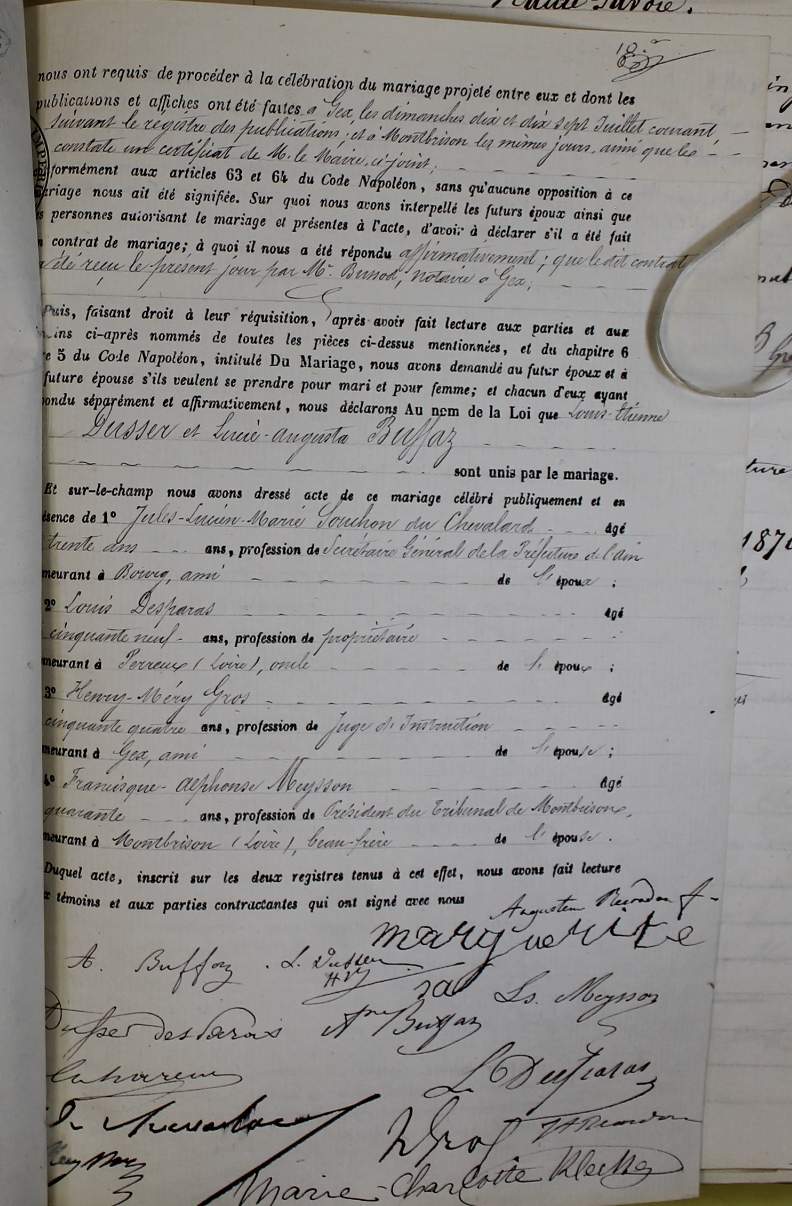 nous ont requis de procéder à la célébration du mariage projeté entre eux et dont les
publications et affiches ont été faites à Gex, les dimanches dix et dix sept Juillet courant,
suivant le registre des publications; et à Montbrison les mêmes jours, ainsi que les
constate un certificat de M. le Maire, ci joint;
formément aux articles 63 et 64 du Code Napoléon, sans qu'aucune opposition à ce
ariage nous ait été signifiée. Sur quoi nous avons interpellé les futurs époux ainsi que
s personnes autorisant le mariage et présentes à l'acte, d'avoir à déclarer s'il a été fait
contrat de mariage; à quoi il nous a été répondu affirmativement; que le dit contrat
a été reçu le présent jour par Me notaire à Gex;
Puis, faisant droit à leur réquisition, après avoir fait lecture aux parties et aux
ins ci-après nommés de toutes les pièces ci-dessus mentionnées, et du chapitre 6
re 5 du Code Napoléon, intitulé Du Mariage, nous avons demandé au futur époux et à
future épouse s'ils veulent se prendre pour mari et pour femme; et chacun d'eux ayant
ondu séparément et affirmativement, nous déclarons Au nom de la Loi que Louis-Etienne
Dusser et Lucie-Augusta Buffaz
sont unis par le mariage.
Et sur-le-champ nous avons dressé acte de ce mariage célébré publiquement et en
ésence de 1° Jules-Lucien-Marie Souchon du Chevalard âgé
trente ans ans, profession de Secrétaire Général de la Préfecture de l'Ain
meurant à Bourg, ami de l'époux;
2° Louis Desparas âgé
cinquante neuf ans, profession de propriétaire
meurant à Perreux (Loire), oncle de l'époux;
3° Henry-Méry Gros âgé
cinquante quatre ans, profession de Juge d'Instruction
meurant à Gex, ami de l'épouse;
4° Francisque-Alphonse Meysson âgé
quarante ans, profession de Président du Tribunal de Montbrison,
meurant à Montbrison (Loire), beau-frère de l'épouse.
Duquel acte, inscrit sur les deux registres tenus à cet effet, nous avons fait lecture
x témoins et aux parties contractantes qui ont signé avec nous
marguerite
A. Buffaz L. Dusser
Ls. Meysson
Buffaz
Marie-Charlotte
187